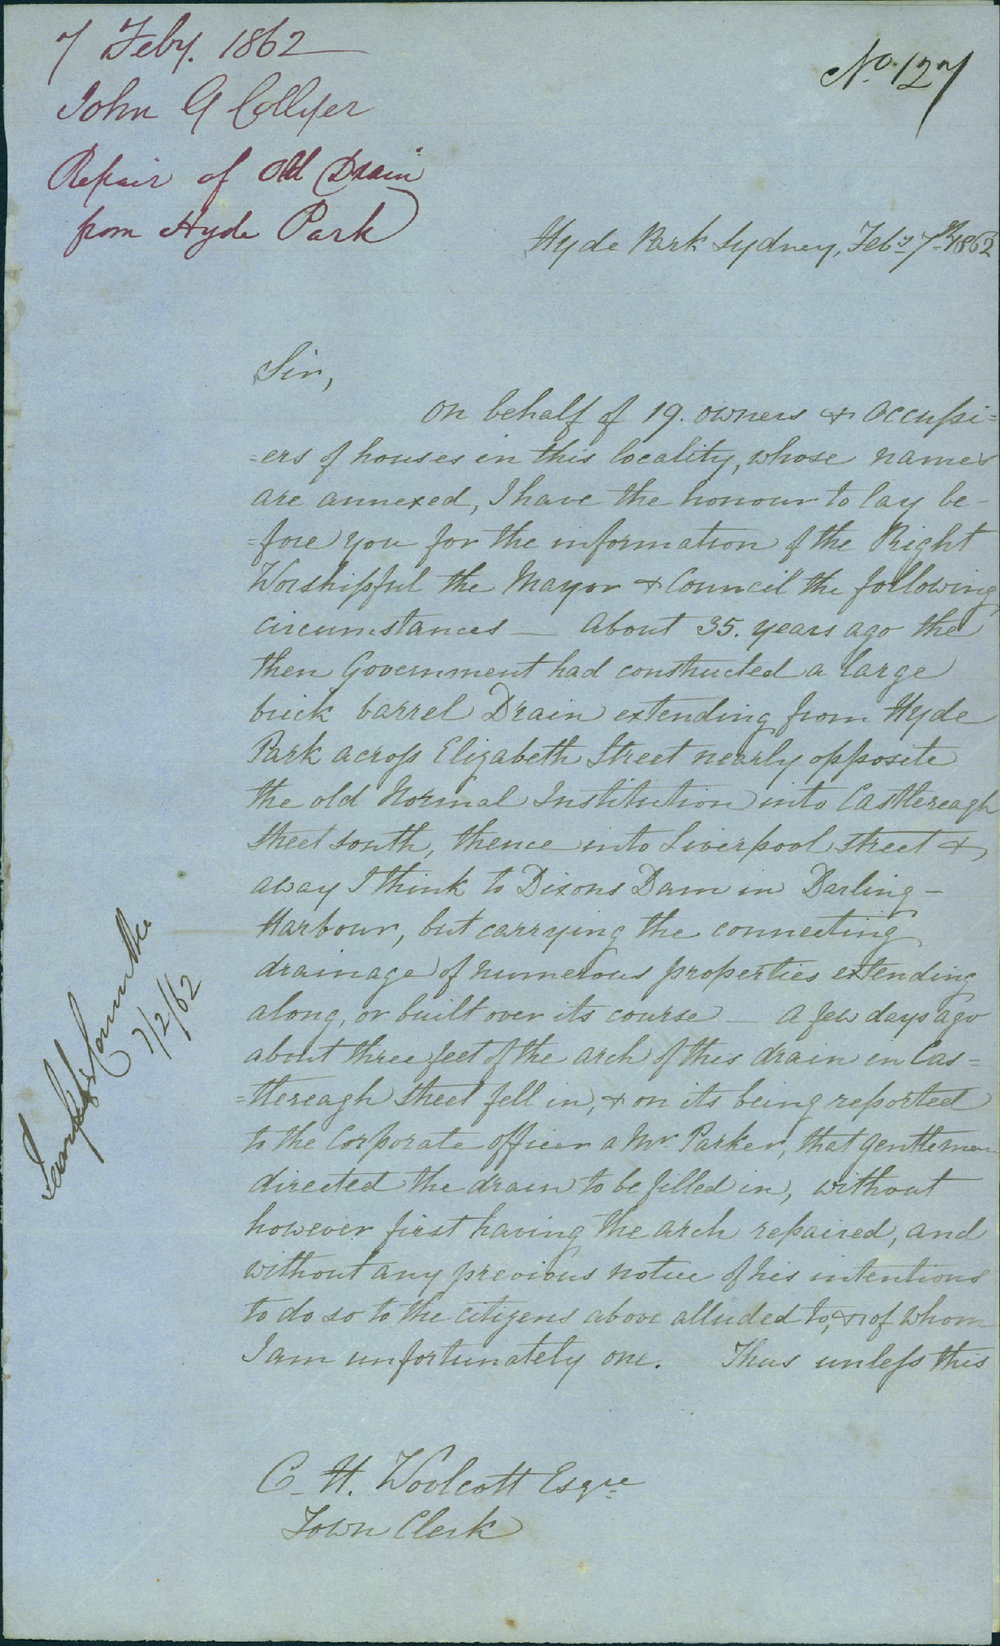 7 Feby. 1862
John G Collyer
Repair of Old Drain
from Hyde Park
No. 127
Hyde Park Sydney, Feby 7th 1862
Sir,
On behalf of 19. owners & Occupi=
=ers of houses in this locality, whose names
are annexed, I have the honour to lay be-
=fore you for the information of the Right
Worshipful the Mayor & Council the following
circumstances — About 35. years ago the
then Government had constructed a large
brick barrel Drain extending from Hyde
Park across Elizabeth Street nearly opposite
the old Normal Institution into Castlereagh
Street South, thence into Liverpool Street &
away I think to Dixons Dam in Darling-
Harbour, but carrying the connecting
drainage of numerous properties extending
along, or built over its course — A few days ago
about three feet of the arch of this drain in Cas=
=tlereagh Street fell in, & on its being reported
to the Corporate officer a Mr Parker, that gentleman
directed the drain to be filled in, without
however first having the arch repaired, and
without any previous notice of his intentions
to do so to the citizens above alluded to, & of whom
I am unfortunately one. Thus unless this
C. H. Woolcott Esqre
Town Clerk
Committee
7/2/62